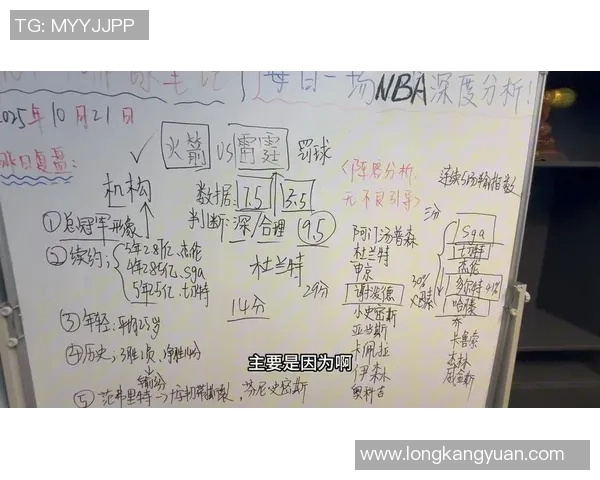 TG: MYYJJPP
每日一场NBA深度分析!
2025年10月21日
火箭 VS 雷霆 罚球
昨日复盘:
机构
数据: 7.5 13.5
判断: 深/合理 9.5
<阵容分析,
无不良引导>
连续5场输指数
①总冠军形象
②续约:
5年2.87亿.杰伦
4年2.85亿.sga
5年2.5亿.切特
杜兰特
14分
29分
③年轻:平均25岁
④历史:3胜1负,净胜14分
⑤范弗里特→
芬尼史密斯
三分
30%
阿门汤普森
杜兰特
申京
谢泼德
小史密斯
亚当斯
卡佩拉
伊森
奥科吉
Sga
切特
杰伦
多尔特 41%
哈滕
乔
卡鲁索
杰林
威金斯
主要是因为啊
www.longkangyuan.com